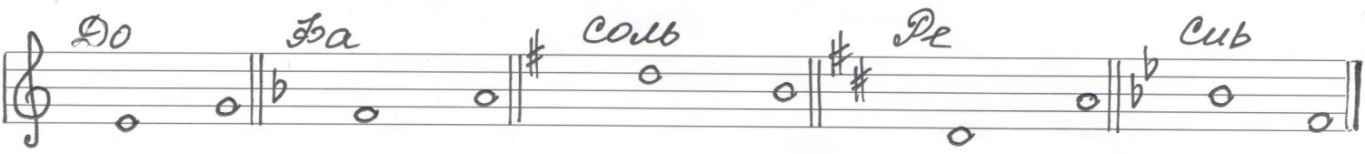 До Фа Соль Ре Сиb